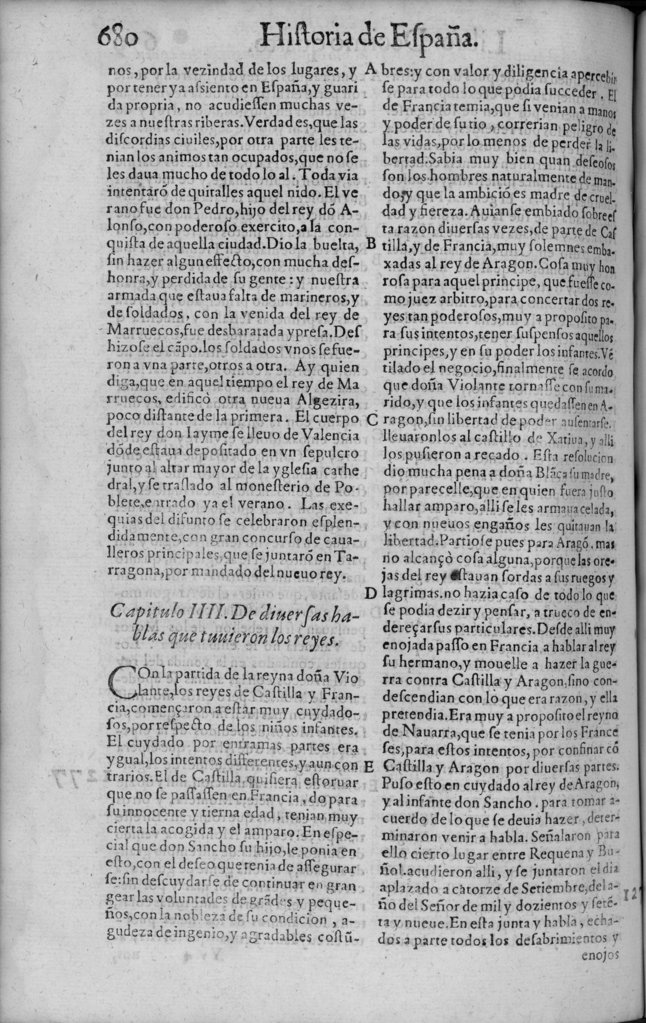 680 Historia de España.
nos, por la vezindad de los lugares, y
por tener ya assiento en España, y guari
da propria, no acudiessen muchas ve-
zes a nuestras riberas. Verdad es, que las
discordias ciuiles, por otra parte les te-
nian los animos tan ocupados, que no se
les daua mucho de todo lo al. Toda via
intentarõ de quitalles aquel nido. El ve
rano fue don Pedro, hijo del rey dõ A-
lonso, con poderoso exercito, a la con-
quista de aquella ciudad. Dio la buelta,
sin hazer algun effecto, con mucha des-
honra, y perdida de su gente: y nuestra
armada que estaua falta de marineros, y
de soldados, con la venida del rey de
Marruecos, fue desbaratada y presa. Des
hizose el cãpo. los soldados vnos se fue-
ron a vna parte, otros a otra. Ay quien
diga, que en aquel tiempo el rey de Ma
rruecos, edificò otra nueua Algezira,
poco distante de la primera. El cuerpo
del rey don Iayme se lleuo de Valencia
dõde estaua depositado en vn sepulcro
junto al altar mayor de la yglesia cathe
dral, y se traslado al monesterio de Po-
blete, entrado ya el verano. Las exe-
quias del difunto se celebraron esplen-
didamente, con gran concurso de caua-
lleros principales, que se juntarõ en Ta-
rragona, por mandado del nueuo rey.
Capitulo IIII. De diuersas ha-
blas que tuuieron los reyes.
COn la partida de la reyna doña Vio
lante, los reyes de Castilla y Fran-
cia, començaron a estar muy cuydado-
sos, por respecto de los niños infantes.
El cuydado por entramas partes era
ygual, los intentos differentes, y aun con
trarios. El de Castilla quisiera estoruar
que no se passassen en Francia, do para
su innocente y tierna edad, tenian muy
cierta la acogida y el amparo. En espe-
cial que don Sancho su hijo, le ponia en
esto, con el deseo que tenia de assegurar
se: sin descuydarse de continuar en gran
gear las voluntades de grãdes y peque-
ños, con la nobleza de su condicion, a-
gudeza de ingenio, y agradables costũ-
A bres: y con valor y diligencia apercebir
se para todo lo que podia succeder. El
de Francia temia, que si venian a manos
y poder de su tio, correrian peligro de
las vidas, por lo menos de perder la li-
bertad. Sabia muy bien quan deseosos
son los hombres naturalmente de man-
do, y que la ambiciõ es madre de cruel-
dad y fiereza. Auianse embiado sobre es
ta razon diuersas vezes, de parte de Cas
B tilla, y de Francia, muy solemnes emba-
xadas al rey de Aragon. Cosa muy hon
rosa para aquel principe, que fuesse co-
mo juez arbitro, para concertar dos re-
yes tan poderosos, muy a proposito pa-
ra sus intentos, tener suspensos aquellos
principes, y en su poder los infantes. Vẽ
tilado el negocio, finalmente se acordo
que doña Violante tornasse con su ma-
rido, y que los infantes quedassen en A-
C ragon, sin libertad de poder ausentarse.
lleuaronlos al castillo de Xatiua, y alli
los pusieron a recado. Esta resolucion
dio mucha pena a doña Blãca su madre,
por parecelle, que en quien fuera justo
hallar amparo, alli se les armaua celada,
y con nueuos engaños les quitauan la
libertad. Partiose pues para Aragõ. mas
no alcançò cosa alguna, porque las ore-
jas del rey estauan sordas a sus ruegos y
D lagrimas. no hazia caso de todo lo que
se podia dezir y pensar, a trueco de en-
dereçar sus particulares. Desde alli muy
enojada passo en Francia a hablar al rey
su hermano, y mouelle a hazer la gue-
rra contra Castilla y Aragon, sino con-
descendian con lo que era razon, y ella
pretendia. Era muy a proposito el reyno
de Nauarra, que se tenia por los France
ses, para estos intentos, por confinar cõ
E Castilla y Aragon por diuersas partes.
Puso esto en cuydado al rey de Aragon,
y al infante don Sancho. para tomar a-
cuerdo de lo que se deuia hazer, deter-
minaron venir a habla. Señalaron para
ello cierto lugar entre Requena y Bu-
ñol. acudieron alli, y se juntaron el dia
aplazado a catorze de Setiembre, del a-
ño del Señor de mil y dozientos y setẽ-
ta y nueue. En esta junta y habla, echa-
dos a parte todos los desabrimientos y
enojos